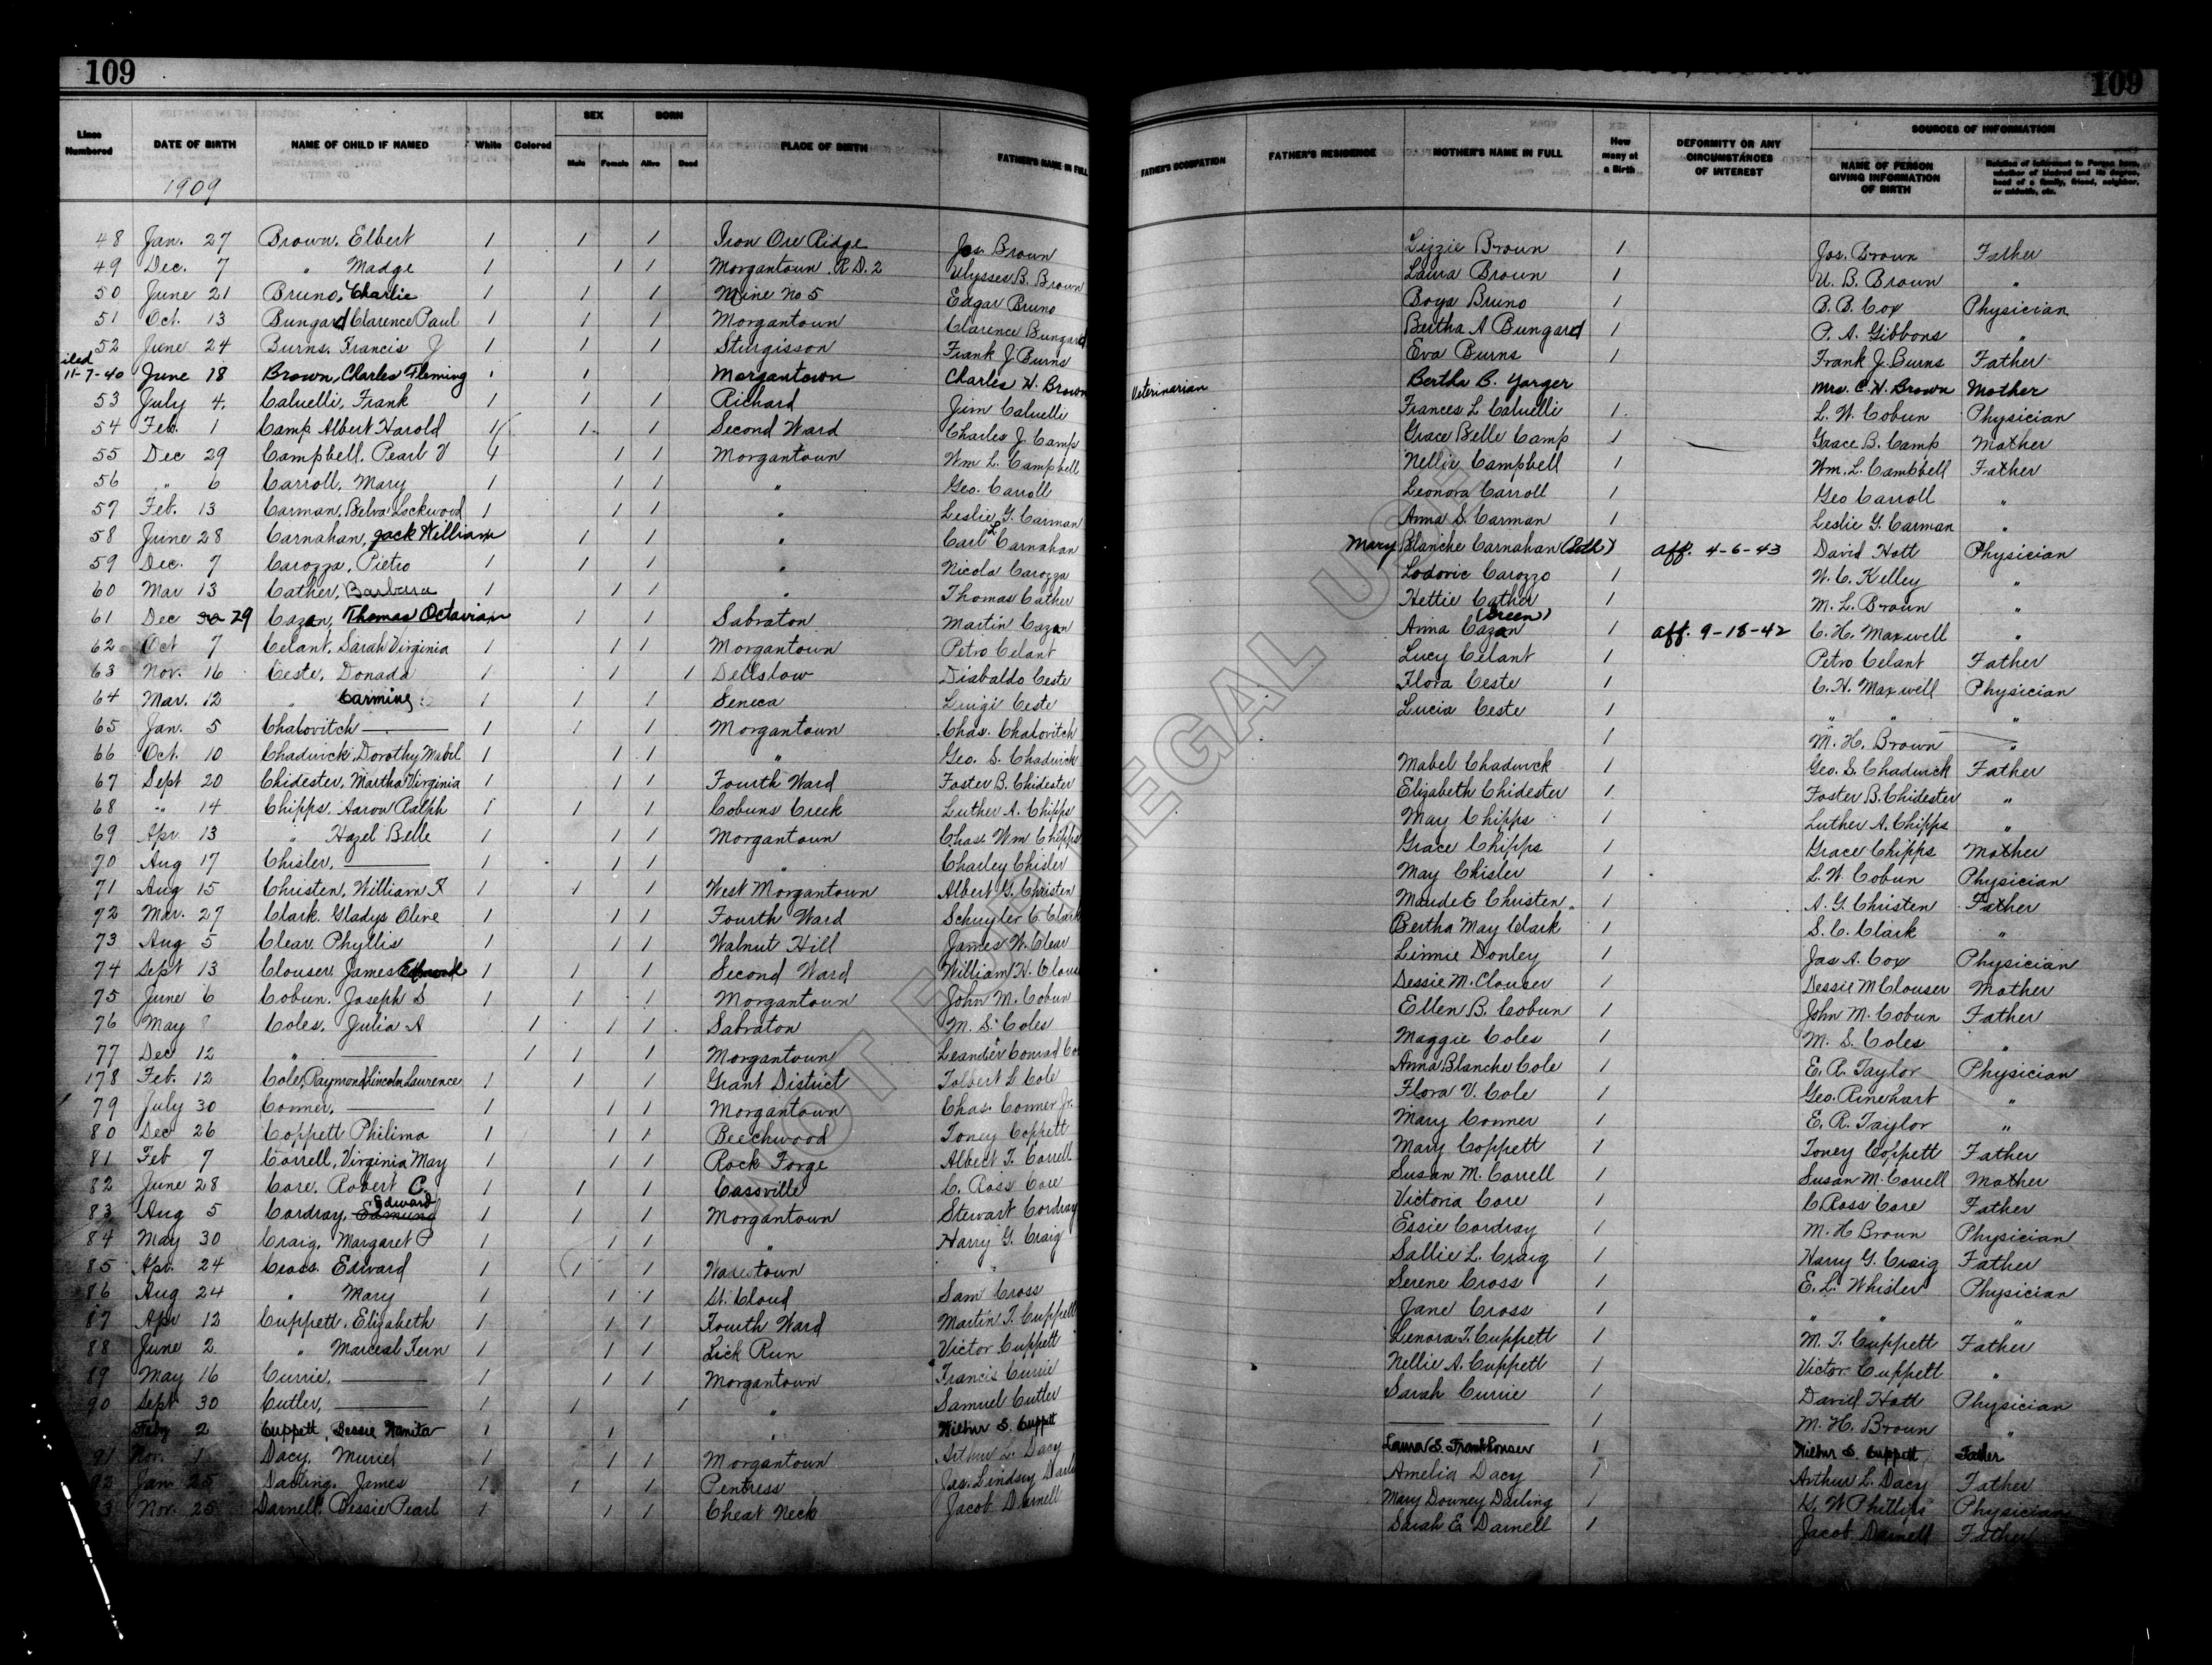 109
109
Lines Numbered
DATE OF BIRTH
NAME OF CHILD IF NAMED
White
Colored
SEX
Male
Female
BORN
Alive
Dead
PLACE OF BIRTH
FATHER'S NAME IN FULL
FATHER'S OCCUPATION
FATHER'S RESIDENCE
MOTHER'S NAME IN FULL
How many at a Birth
DEFORMITY OR ANY CIRCUMSTANCES OF INTEREST
SOURCES OF INFORMATION
NAME OF PERSON GIVING INFORMATION OF BIRTH
Relation of Informant to Person born, whether of kindred and its degree, head of a family, friend, neighbor, or midwife, etc.
1909
48 Jan. 27 Brown, Elbert 1 1 1 Iron Ore Ridge Jos. Brown Lizzie Brown 1 Jos. Brown Father
49 Dec. 7 " Madge 1 1 1 Morgantown R.D. 2 Ulysses B. Brown Laura Brown 1 U. B. Brown "
50 June 21 Bruno, Charlie 1 1 1 Mine No 5 Edgar Bruno Boya Bruno 1 B. B. Cox Physician
51 Oct. 13 Bungard Clarence Paul 1 1 1 Morgantown Clarence Bungard Bertha A Bungard 1 P. A. Gibbons "
52 June 24 Burns, Francis J 1 1 1 Sturgisson Frank J. Burns Eva Burns 1 Frank J. Burns Father
iled 11-7-40 June 18 Brown, Charles Fleming 1 1 Morgantown Charles W. Brown Veterinarian Bertha B. Yarger Mrs. C. W. Brown Mother
53 July 4. Caluelli, Frank 1 1 1 Richard Jim Caluelli Frances L Caluelli 1 L. W. Cobun Physician
54 Feb. 1 Camp Albert Harold 1 1 1 Second Ward Charles J. Camp Grace Belle Camp 1 Grace B. Camp Mother
55 Dec 29 Campbell, Pearl V 1 1 1 Morgantown Wm L. Campbell Nellie Campbell 1 Wm. L. Campbell Father
56 " 6 Carroll, Mary 1 1 1 " Geo. Carroll Leonora Carroll 1 Geo Carroll "
57 Feb. 13 Carman, Belva Lockwood 1 1 1 " Leslie G. Carman Anna S. Carman 1 Leslie G. Carman "
58 June 28 Carnahan, Jack William 1 1 " Carl L Carnahan Mary Blanche Carnahan aff. 4-6-43 David Hott Physician
59 Dec. 7 Carozza, Pietro 1 1 1 " Nicola Carozza Lodovic Carozzo 1 W. C. Kelley "
60 Mar 13 Cather, Barbara 1 1 1 " Thomas Cather Hettie Cather 1 M. L. Brown "
61 Dec 30 29 Cazan, Thomas Octavian 1 1 Sabraton Martin Cazan Anna Cazan (Green) 1 aff. 9-18-42 C. H. Maxwell "
62 Oct 7 Celant, Sarah Virginia 1 1 1 Morgantown Petro Celant Lucy Celant 1 Petro Celant Father
63 Nov. 16 Ceste, Donada 1 1 1 Dellslow Diabaldo Ceste Flora Ceste 1 C. H. Maxwell Physician
64 Mar. 12 " Carmine 1 1 1 Seneca Luigi Ceste Lucia Ceste 1 " " "
65 Jan. 5 Chalovitch 1 1 1 Morgantown Chas. Chalovitch 1 M. H. Brown "
66 Oct. 10 Chadwick, Dorothy Mabel 1 1 1 " Geo. S. Chadwick Mabel Chadwick 1 Geo. S. Chadwick Father
67 Sept 20 Chidester, Martha Virginia 1 1 1 Fourth Ward Foster B. Chidester Elizabeth Chidester 1 Foster B. Chidester "
68 " 14 Chipps, Aaron Ralph 1 1 1 Cobuns Creek Luther A. Chipps May Chipps 1 Luther A. Chipps "
69 Apr. 13 " Hazel Belle 1 1 1 Morgantown Chas. Wm Chipps Grace Chipps 1 Grace Chipps Mother
70 Aug 17 Chisler, 1 1 1 " Charley Chisler May Chisler 1 L. W. Cobun Physician
71 Aug 15 Christen, William F 1 1 1 West Morgantown Albert G. Christen Maude E Christen 1 A. G. Christen Father
72 Mar. 27 Clark. Gladys Olive 1 1 1 Fourth Ward Schuyler C. Clark Bertha May Clark 1 S. C. Clark "
73 Aug 5 Clear Phyllis 1 1 1 Walnut Hill James W. Clear Linnie Donley 1 Jas A. Cox Physician
74 Sept 13 Clouser, James Edward 1 1 1 Second Ward William H. Clous Dessie M. Clouser 1 Dessie M Clouser Mother
75 June 6 Cobun. Joseph S 1 1 1 Morgantown John M. Cobun Ellen B. Cobun 1 John M. Cobun Father
76 May 8 Coles, Julia A 1 1 1 Sabraton M. S. Coles Maggie Coles 1 M. S. Coles "
77 Dec 12 " 1 1 1 Morgantown Leander Conrad Co Anna Blanche Cole 1 E. R. Taylor Physician
178 Feb. 12 Cole, Raymond Lincoln Lawrence 1 1 1 Grant District Tolbert L Cole Flora V. Cole 1 Geo. Rinehart "
79 July 30 Conner, 1 1 1 Morgantown Chas. Conner Jr. Mary Conner 1 E. R. Taylor "
80 Dec 26 Coppett Philima 1 1 1 Beechwood Toney Coppett Mary Coppett 1 Toney Coppett Father
81 Feb 7 Correll, Virginia May 1 1 1 Rock Forge Albert T. Correll Susan M. Correll 1 Susan M. Correll Mother
82 June 28 Core, Robert C. 1 1 1 Cassville C. Ross Core Victoria Core 1 C. Ross Core Father
83 Aug 5 Cordray, Edmund Edward 1 1 1 Morgantown Stewart Cordray Essie Cordray 1 M. H Brown Physician
84 May 30 Craig, Margaret P 1 1 1 " Harry G. Craig Sallie L. Craig 1 Harry G. Craig Father
85 Apr. 24 Cross. Edward 1 1 1 Wadestown Serene Cross 1 E. L. Whisler Physician
86 Aug 24 " Mary 1 1 1 St. Cloud Sam Cross Jane Cross 1 " " "
87 Apr 12 Cuppett, Elizabeth 1 1 1 Fourth Ward Martin T. Cuppett Lenora T. Cuppett 1 M. T. Cuppett Father
88 June 2 " Marceal Fern 1 1 1 Lick Run Victor Cuppett Nellie A. Cuppett 1 Victor Cuppett "
89 May 16 Currie, 1 1 1 Morgantown Francis Currie Sarah Currie 1 David Hott Physician
90 Sept 30 Cutler, 1 1 1 " Samuel Cutler 1 M. H. Brown "
Feby 2 Cuppett, Dessie Wanita 1 1 " Wilbur S. Cuppett Laura S. Frankhouser 1 Wilbur S. Cuppett Father
91 Nov. 1 Dacy, Muriel 1 1 1 Morgantown Arthur L. Dacy Amelia Dacy 1 Arthur L. Dacy Father
92 Jan 25 Darling, James 1 1 1 Pentress Jas. Lindsey Darl Mary Downey Darling 1 H. W Phillips Physician
3 Nov. 25 Darnell, Bessie Pearl 1 1 1 Cheat Neck Jacob Darnell Sarah E. Darnell 1 Jacob Darnell Father
NOT FOR LEGAL USE